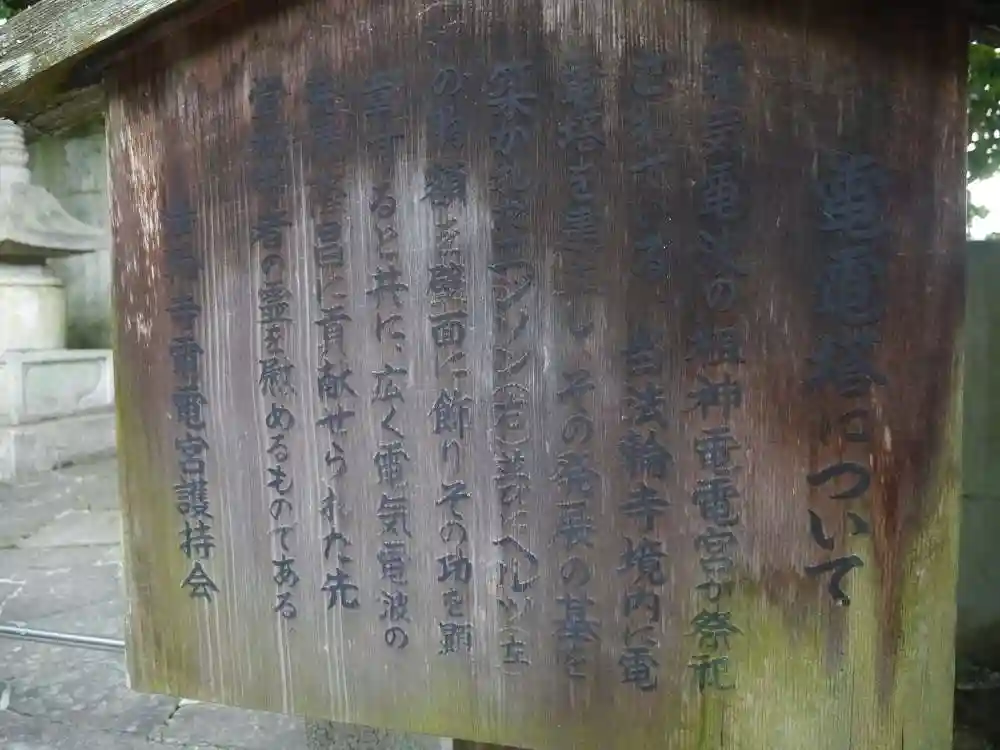 電電塔について
電気電波の祖神電電宮が祭祀
されてゐる、当法輪寺境内に電
電塔を建立し、その発展の基を
築かれたエヂソン(右)並びにヘルツ(左)
の胸額を壁面に飾りその功を顕
すると共に、広く電気電波の
昌に貢献せられた先
者の霊を慰めるものである。
法輪寺電電宮護持会